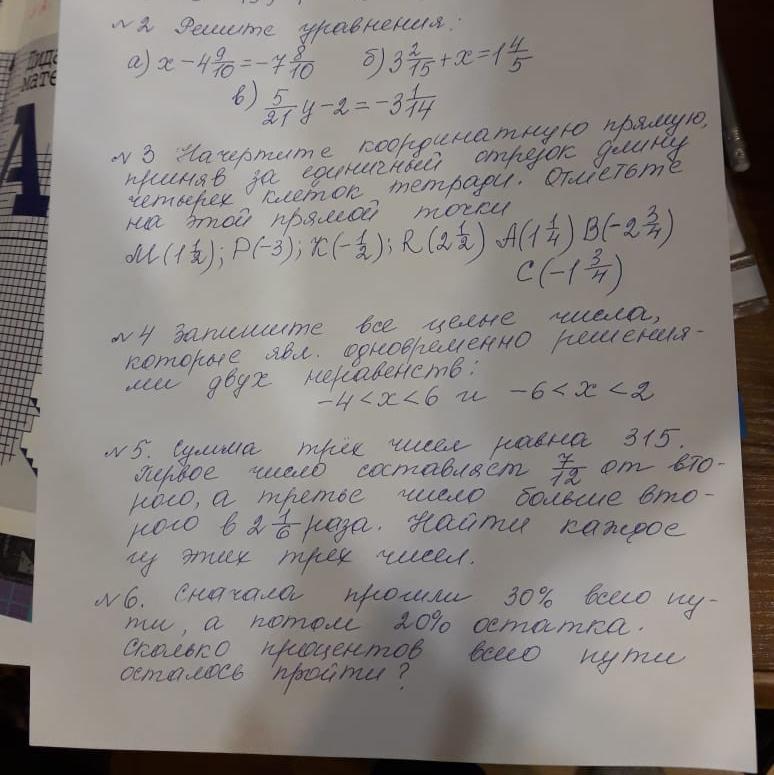 №2 Решите уравнения:
а) x - 4 9/10 = -7 8/10 б) 3 2/15 + x = 1 4/5
в) 5/21 y - 2 = -3 1/14
№3 Начертите координатную прямую,
приняв за единичный отрезок длину
четырех клеток тетради. Отметьте
на этой прямой точки
М(1 1/2); Р(-3); К(-1/2); R(2 1/2) А(1 1/4) В(-2 3/4)
С(-1 3/4)
№4 Запишите все целые числа,
которые явл. одновременно решения-
ми двух неравенств:
-4 < x < 6 и -6 < x < 2
№5. Сумма трёх чисел равна 315.
Первое число составляет 7/12 от вто-
рого, а третье число больше вто-
рого в 2 1/6 раза. Найти каждое
из этих трёх чисел.
№6. Сначала прошли 30% всего пу-
ти, а потом 20% остатка.
Сколько процентов всего пути
осталось пройти?